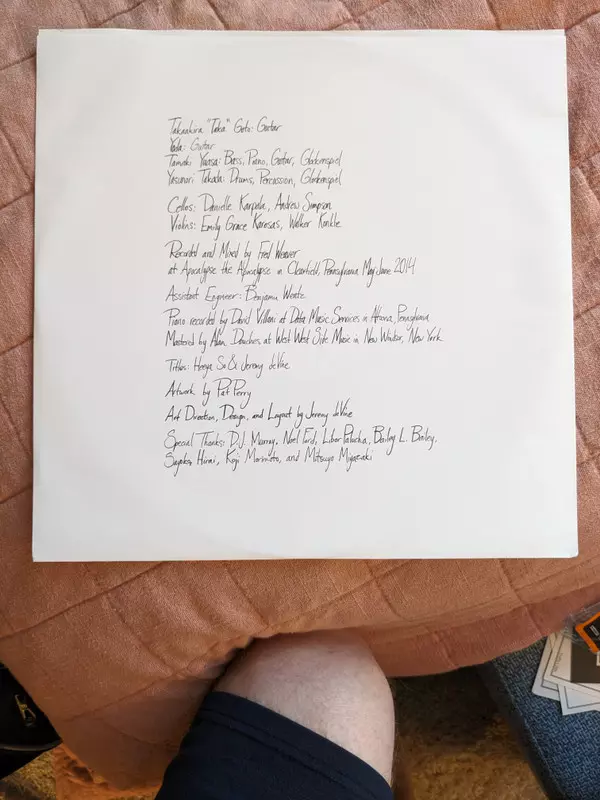 Takaakira "Taka" Goto: Guitar
Yoda: Guitar
Tamaki: Bass, Piano, Guitar, Glockenspiel
Yasunori Takada: Drums, Percussion, Glockenspiel
Cellos: Danielle Karpala, Andrew Simpson
Violins: Emily Grace Karosas, Walker Konkle
Recorded and Mixed by Fred Weaver
at Apocalypse the Apocalypse in Clearfield, Pennsylvania May/June 2014
Assistant Engineer: Benjamin Wentz
Piano recorded by David Villani at Data Music Services in Altoona, Pennsylvania
Mastered by Alan Douches at West West Side Music in New Windsor, New York
Titles: Heeya So & Jeremy deVine
Artwork by Pat Perry
Art Direction, Design, and Layout by Jeremy deVine
Special Thanks: D.J. Murray, Noel Ford, Libor Palucha, Bailey L. Bailey,
Hirai, Koji Morimoto, and Mitsuyo Miyazaki